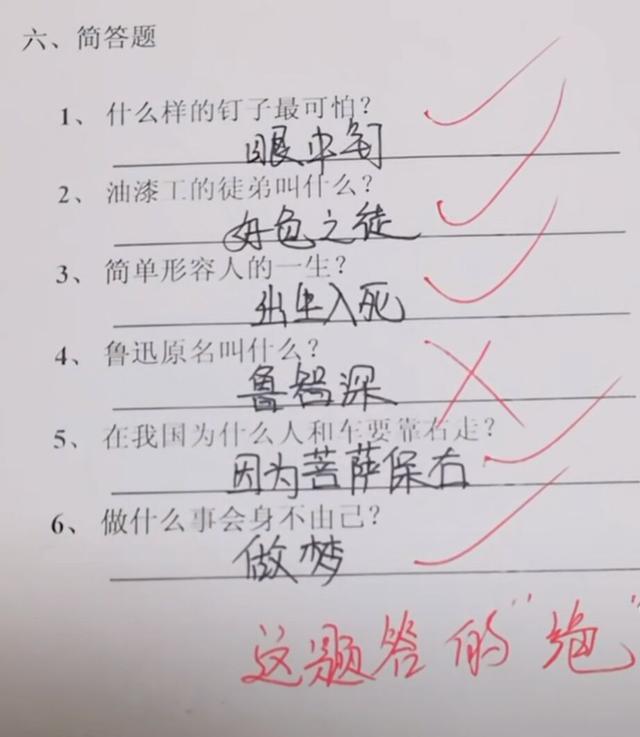 六、简答题
1、什么样的钉子最可怕?
眼中钉
2、油漆工的徒弟叫什么?
好色之徒
3、简单形容人的一生?
出生入死
4、鲁迅原名叫什么?
鲁智深
5、在我国为什么人和车要靠右走?
因为菩萨保右
6、做什么事会身不由己?
做梦
这题答的"绝"